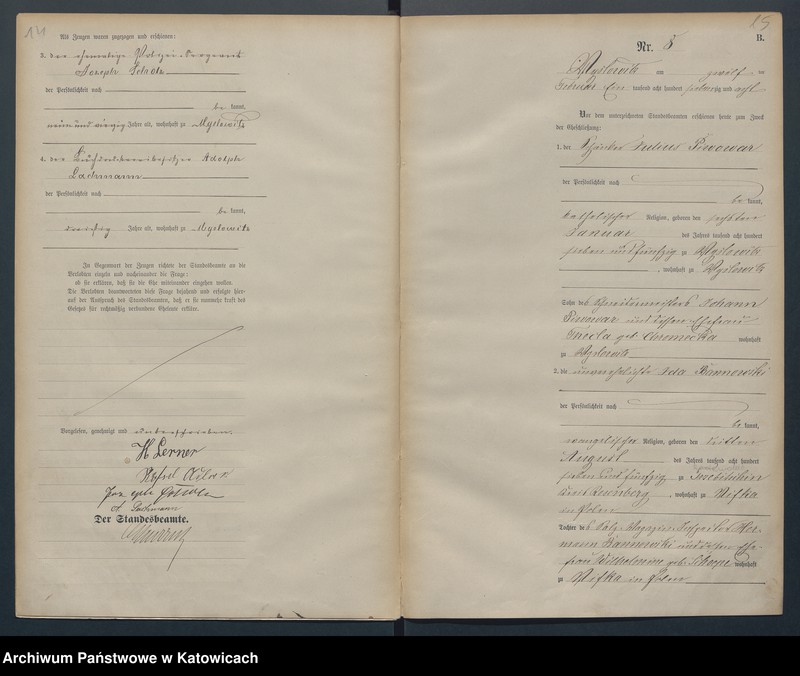 14
Als Zeugen waren zugezogen und erschienen:
3. der ehemalige Polizei-Sergeant
Joseph Scholz
der Persönlichkeit nach
be kannt,
neun und vierzig Jahre alt, wohnhaft zu Myslowitz
4. der Buchdruckereibesitzer Adolph
Lachmann
der Persönlichkeit nach
be kannt,
dreißig Jahre alt, wohnhaft zu Myslowitz
In Gegenwart der Zeugen richtete der Standesbeamte an die
Verlobten einzeln und nacheinander die Frage:
ob sie erklären, daß sie die Ehe miteinander eingehen wollen.
Die Verlobten beantworteten diese Frage bejahend und erfolgte hier-
auf der Ausspruch des Standesbeamten, daß er sie nunmehr kraft des
Gesetzes für rechtmäßig verbundene Eheleute erkläre.
Vorgelesen, genehmigt und unterschrieben.
H Lerner
Joseph Scholz
A. Lachmann
Der Standesbeamte.
15
B.
Nr. 8
Myslowitz am zwölf ten
Februar Ein tausend acht hundert siebenzig und acht
Vor dem unterzeichneten Standesbeamten erschienen heute zum Zweck
der Eheschließung:
1. der Julius Piwowar
der Persönlichkeit nach
be kannt,
katholischer Religion, geboren den sechsten
Januar des Jahres tausend acht hundert
sieben und fünfzig zu Myslowitz
, wohnhaft zu Myslowitz
Sohn des Johann
Piwowar und dessen Ehefrau
Thecla geb. wohnhaft
zu Myslowitz
2. die unverehelichte Ida
der Persönlichkeit nach
be kannt,
evangelischer Religion, geboren den dritten
August des Jahres tausend acht hundert
sieben und fünfzig zu
Kreis Rosenberg, wohnhaft zu Nifka
in Polen
Tochter des Her-
mann und dessen Ehe-
frau Wilhelmine geb. wohnhaft
zu Nifka in Polen
Archiwum Państwowe w Katowicach